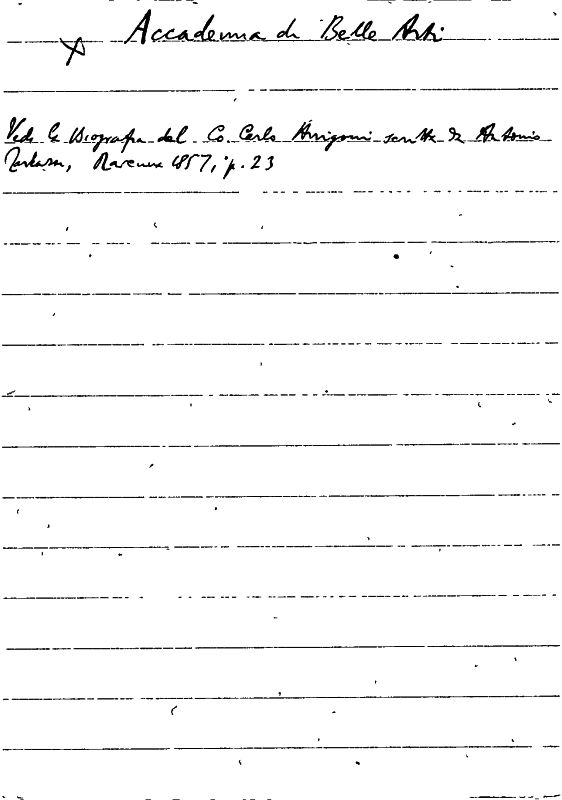 Accademia di Belle Arti
Vedi la Biografia del Co. Carlo Arrigoni scritta da Antonio
Ravenna 1857, p. 23